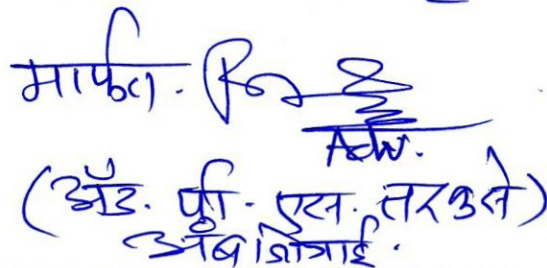 मार्फत.
Adv.
(अॅड. पी. एस. तरकसे)
अंबाजोगाई.